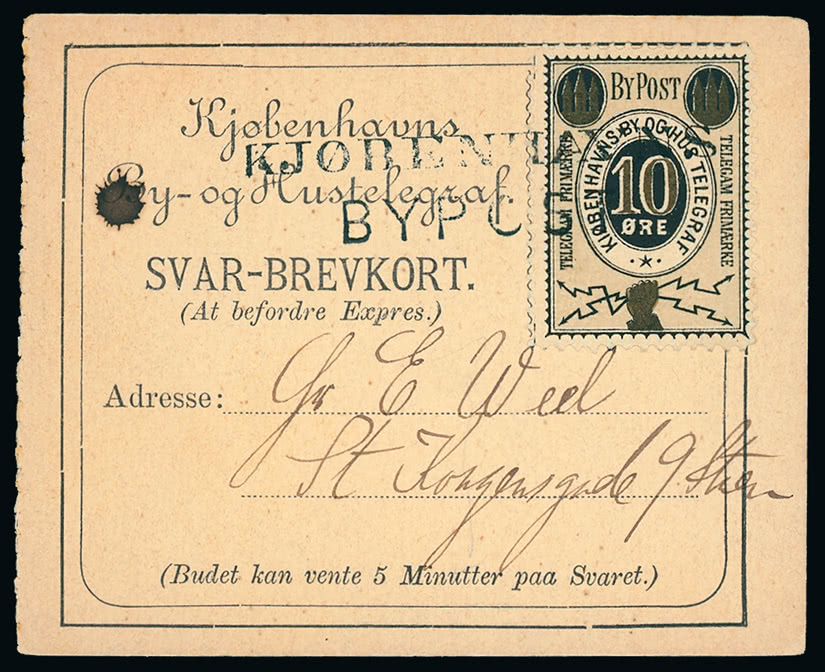 Kjøbenhavns
By- og Hustelegraf.
KJØBENHAVNS
BYPOST
SVAR-BREVKORT.
(At befordre Expres.)
ByPost
KJØBENHAVNS BY OG HUS TELEGRAF
TELEGAM PRIMÆRKE
10
ØRE
TELEGAM PRIMÆRKE
Adresse: Gr E Weel
St Kongensgade 9 Stuen
(Budet kan vente 5 Minutter paa Svaret.)